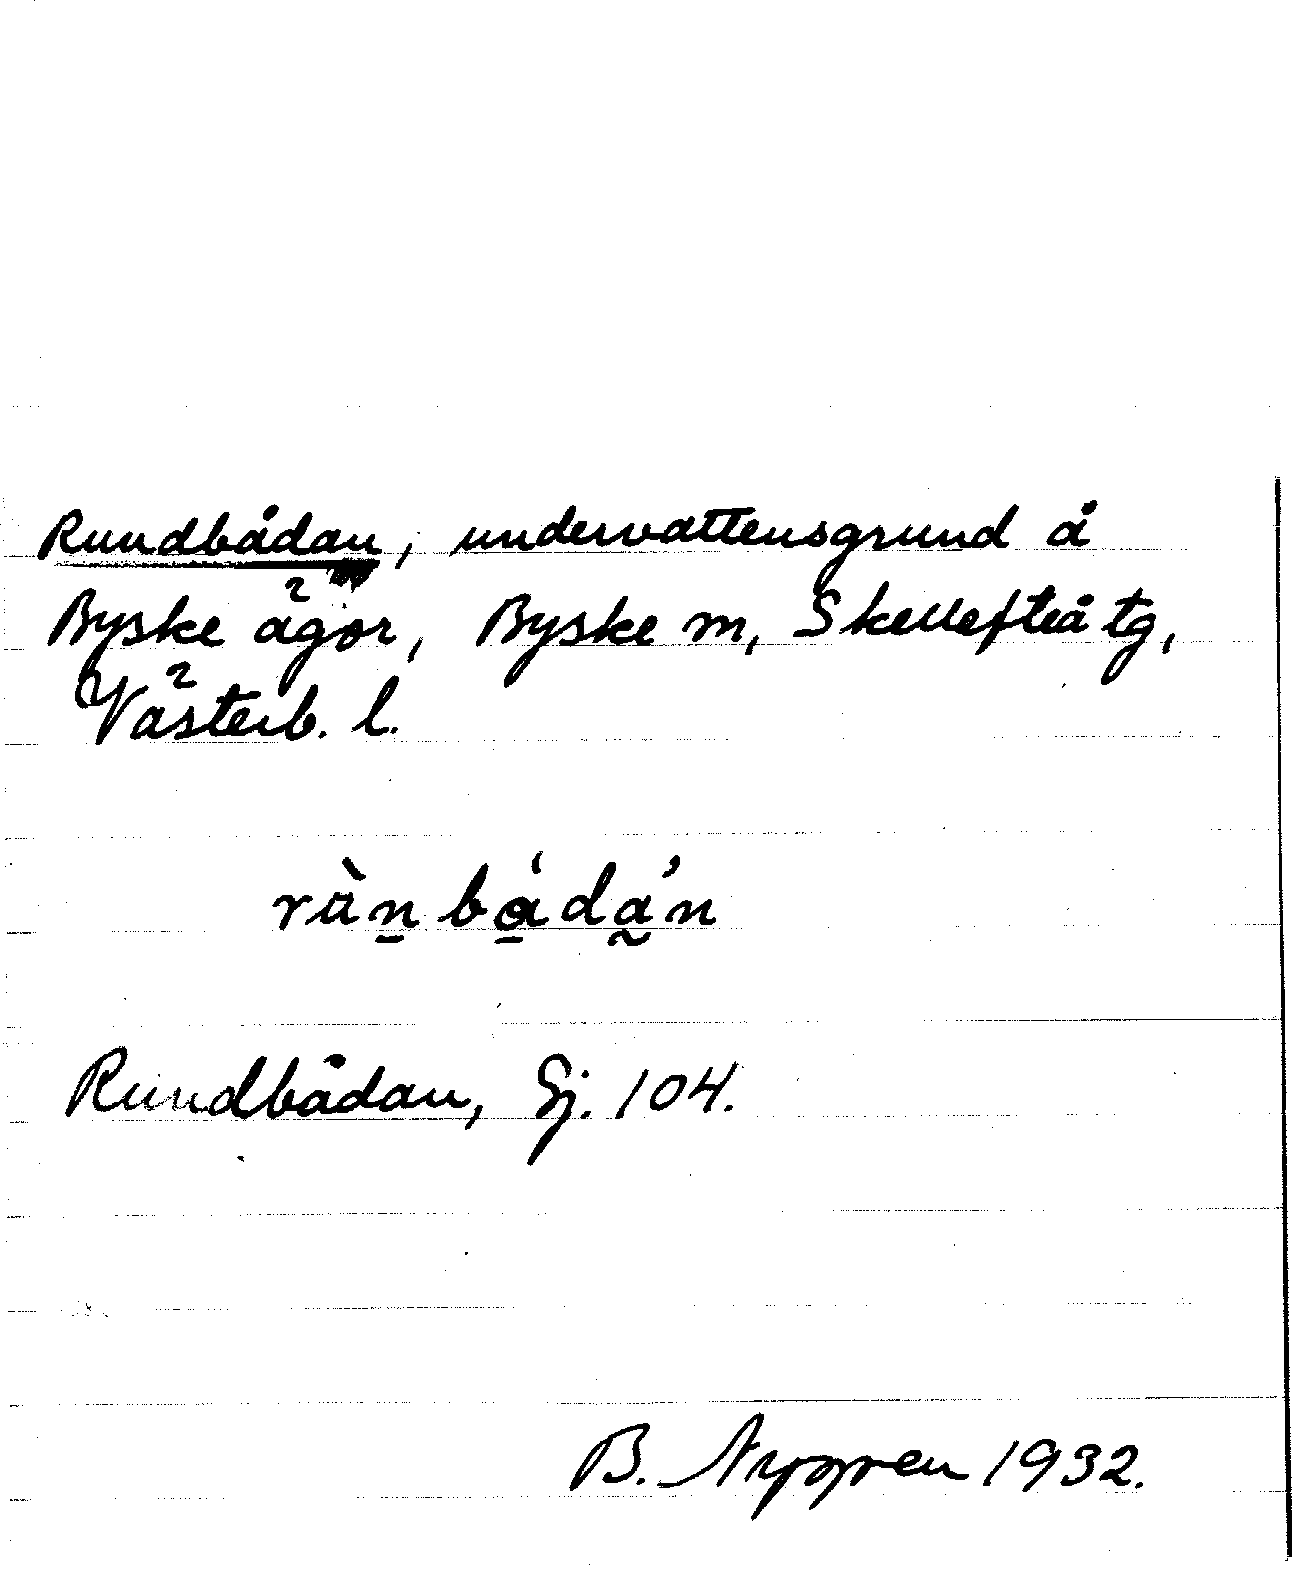 Rundbådan, undervattensgrund å
Byske ägor, Byske sn, Skellefteå tg,
Västerb. l.
rùn̲bǻ̲da̰̓n
Rundbådan, Sj. 104.
B. Nygren 1932.